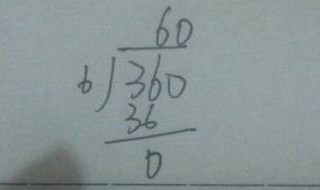 60
6)360
36
0